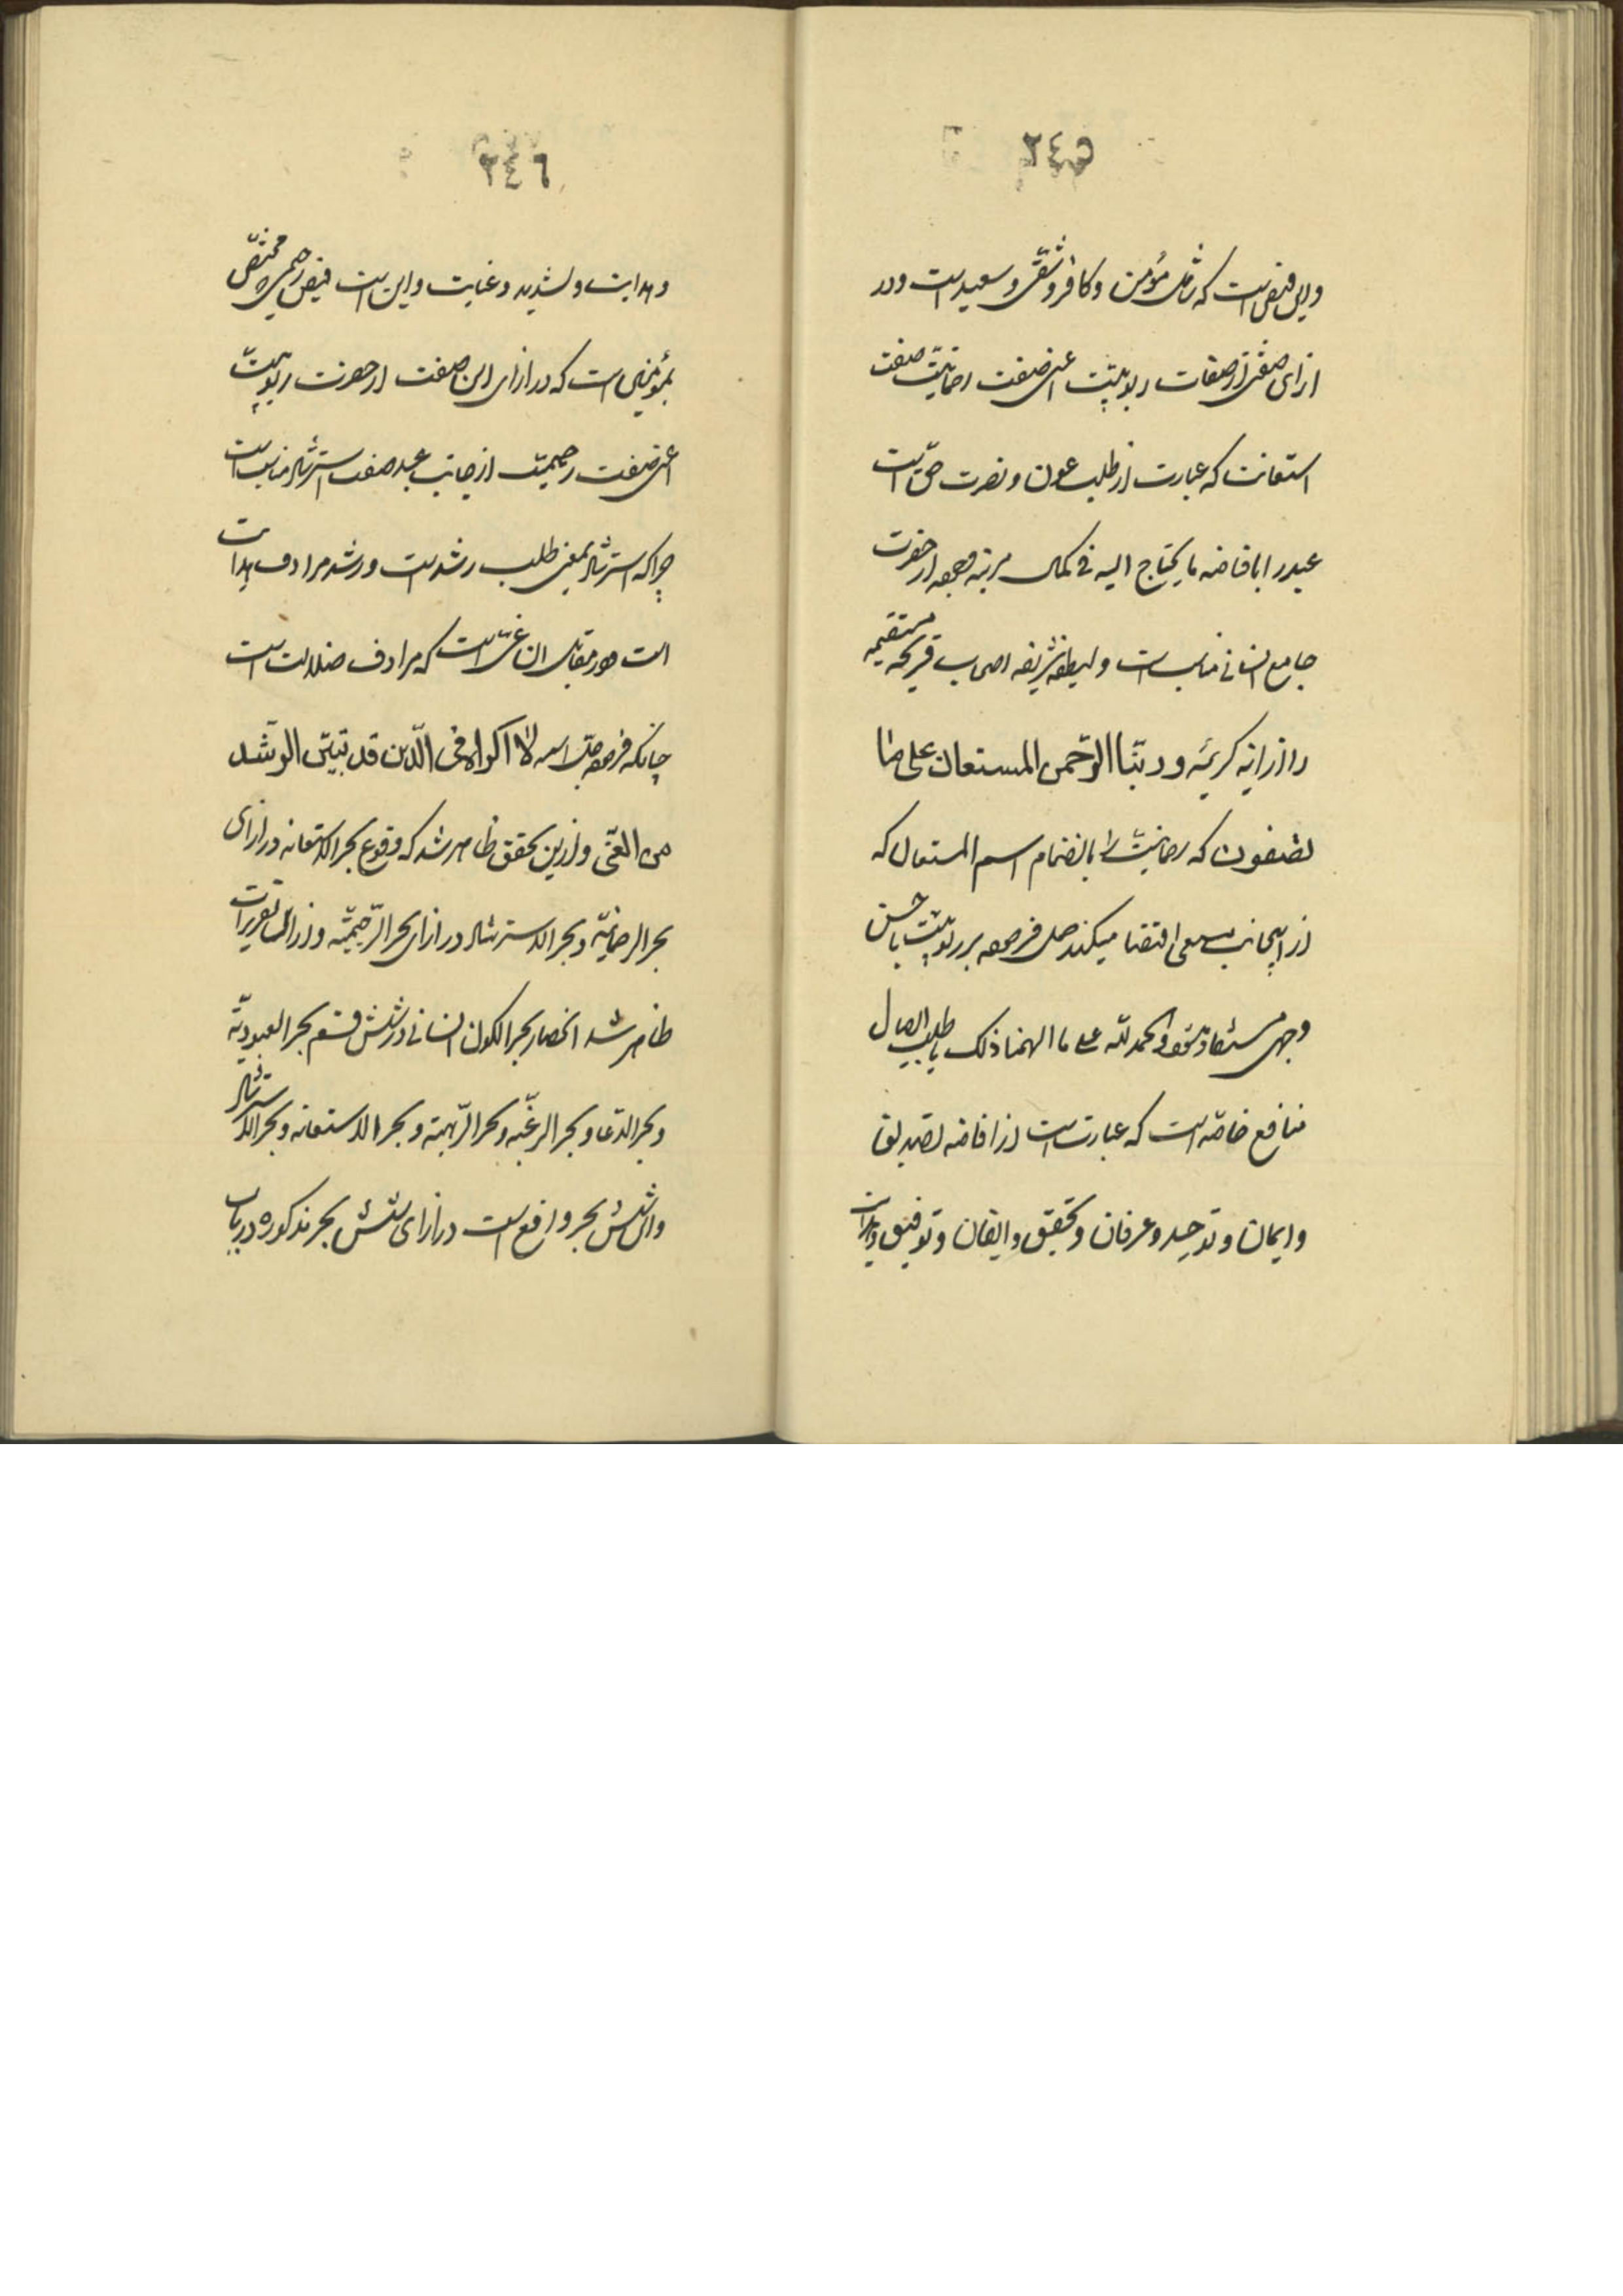 ٢٤٥
و این فیض است که شامل مؤمن و کافر و شقی و سعید است و در
ازای صفتی از صفات ربوبیّت اعنی صفت رحمانیّت صفت
استعانت که عبارت از طلب عون و نصرت حق است
عبد را بافاضه ما یحتاج الیه فی کمال مرتبه از حضرت
جامع انسانی مناسب است و لطیفه شریفه اصحاب قریحه مستقیمه
را از آیه کریمه و ربّنا الرّحمن المستعان علی ما
تصفون که رحمانیّت را بانضمام اسم المستعان که
از ایجاب معنی اقتضا میکند حمل فرموده بر ربوبیّت باحسن
وجهی مستفاد میشود و الحمد لله علی ما الهمنا ذلک یا طلب ایصال
منافع خاصّه است که عبارت است از افاضه تصدیق
و ایمان و توحید و عرفان و تحقیق و ایقان و توفیق و هدایت
٢٤٦
و هدایت و تسدید و عنایت و این است فیض رحیمی که مختصّ
بمؤمنین است که در ازای این صفت از حضرت ربوبیّت
اعنی صفت رحیمیّت از جانب عبد صفت استرشاد مناسب است
چرا که استرشاد بمعنی طلب رشد است و رشد مرادف هدایت
است و در مقابل آن غیّ است که مرادف ضلالت است
چنانکه فرموده جل اسمه لا اکراه فی الّدین قد تبیّن الرشد
من الغیّ و ازین تحقیق ظاهر شد که وقوع بحر الاستعانه در ازای
بحر الرحمانیّه و بحر الاسترشاد در ازای بحر الرّحیمیّه و از این تقریرات
ظاهر شد انحصار بحر الکون انسانی در شش قسم بحر العبودیّه
و بحر الدّعا و بحر الرغبه و بحر الرّهبه و بحر الاستعانه و بحر الاسترشاد
و این شش بحر واقع است در ازای شش بحر مذکوره در باب